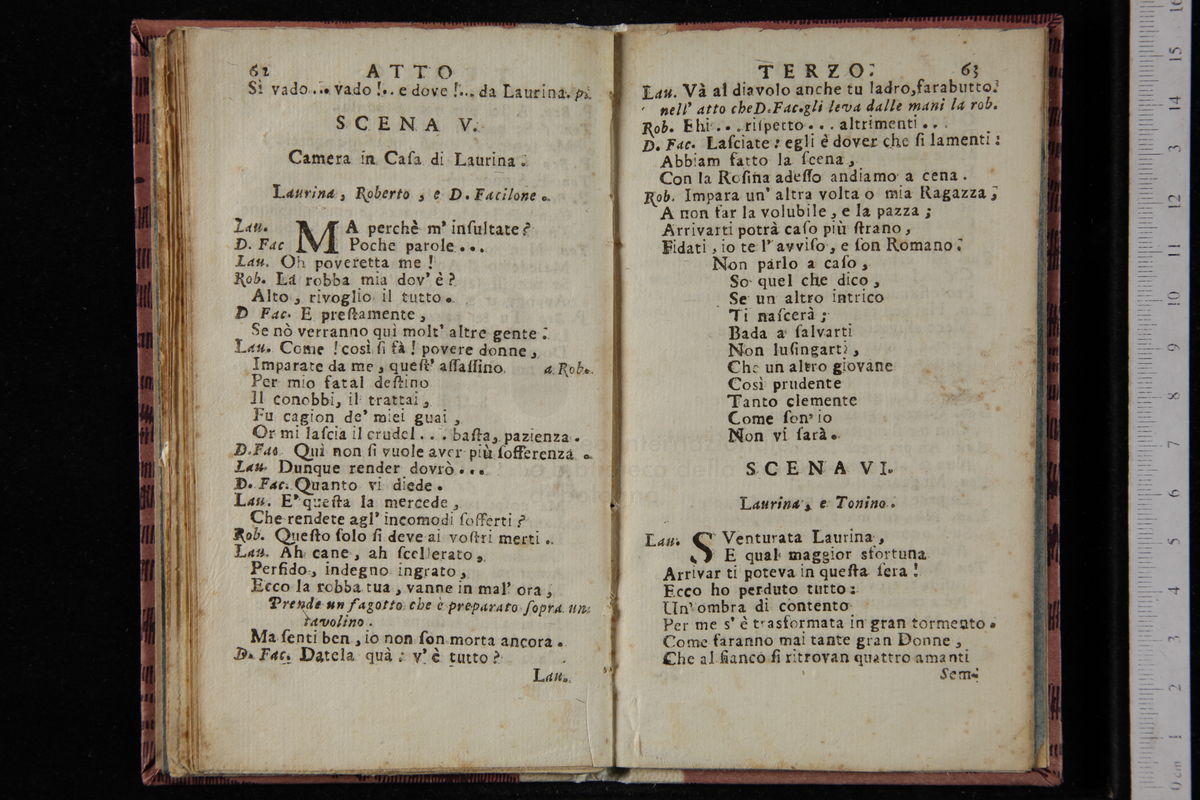 62 ATTO
Sì vado ... vado !.. e dove !... da Laurina. pa.
SCENA V.
Camera in Caſa di Laurina.
Laurina, Roberto, e D. Facilone.
Lau. MA perchè m' inſultate?
D. Fac Poche parole...
Lau. Oh poveretta me!
Rob. La robba mia dov' è?
Alto, rivoglio il tutto.
D Fac. E preſtamente,
Se nò verranno quì molt' altre gente.
Lau. Come! così ſi fà! povere donne,
Imparate da me, queſt' aſſaſſino a Rob.
Per mio fatal deſtino
Il conobbi, il trattai,
Fu cagion de' miei guai,
Or mi laſcia il crudel... baſta, pazienza.
D. Fac Quì non ſi vuole aver più ſofferenza.
Lau. Dunque render dovrò...
D. Fac. Quanto vi diede.
Lau. E' queſta la mercede,
Che rendete agl' incomodi ſofferti?
Rob. Queſto ſolo ſi deve ai voſtri merti.
Lau. Ah cane, ah ſcellerato,
Perfido, indegno ingrato,
Ecco la robba tua, vanne in mal' ora,
Prende un fagotto che è preparato ſopra un
tavolino.
Ma ſenti ben, io non ſon morta ancora.
D. Fac. Datela quà: v' è tutto?
Lau.
TERZO. 63
Lau. Và al diavolo anche tu ladro, farabutto.
nell' atto che D. Fac. gli leva dalle mani la rob.
Rob. Ehi... riſpetto... altrimenti...
D. Fac. Laſciate: egli è dover che ſi lamenti:
Abbiam fatto la ſcena,
Con la Roſina adeſſo andiamo a cena.
Rob. Impara un' altra volta o mia Ragazza,
A non far la volubile, e la pazza;
Arrivarti potrà caſo più ſtrano,
Fidati, io te l' avviſo, e ſon Romano.
Non parlo a caſo,
So quel che dico,
Se un altro intrico
Ti naſcerà;
Bada a ſalvarti
Non luſingarti,
Che un altro giovane
Così prudente
Tanto clemente
Come ſon' io
Non vi ſarà.
SCENA VI.
Laurina, e Tonino.
Lau. SVenturata Laurina,
E qual maggior sfortuna
Arrivar ti poteva in queſta ſera!
Ecco ho perduto tutto:
Un' ombra di contento
Per me s' è trasformata in gran tormento.
Come faranno mai tante gran Donne,
Che al fianco ſi ritrovan quattro amanti
Sem-